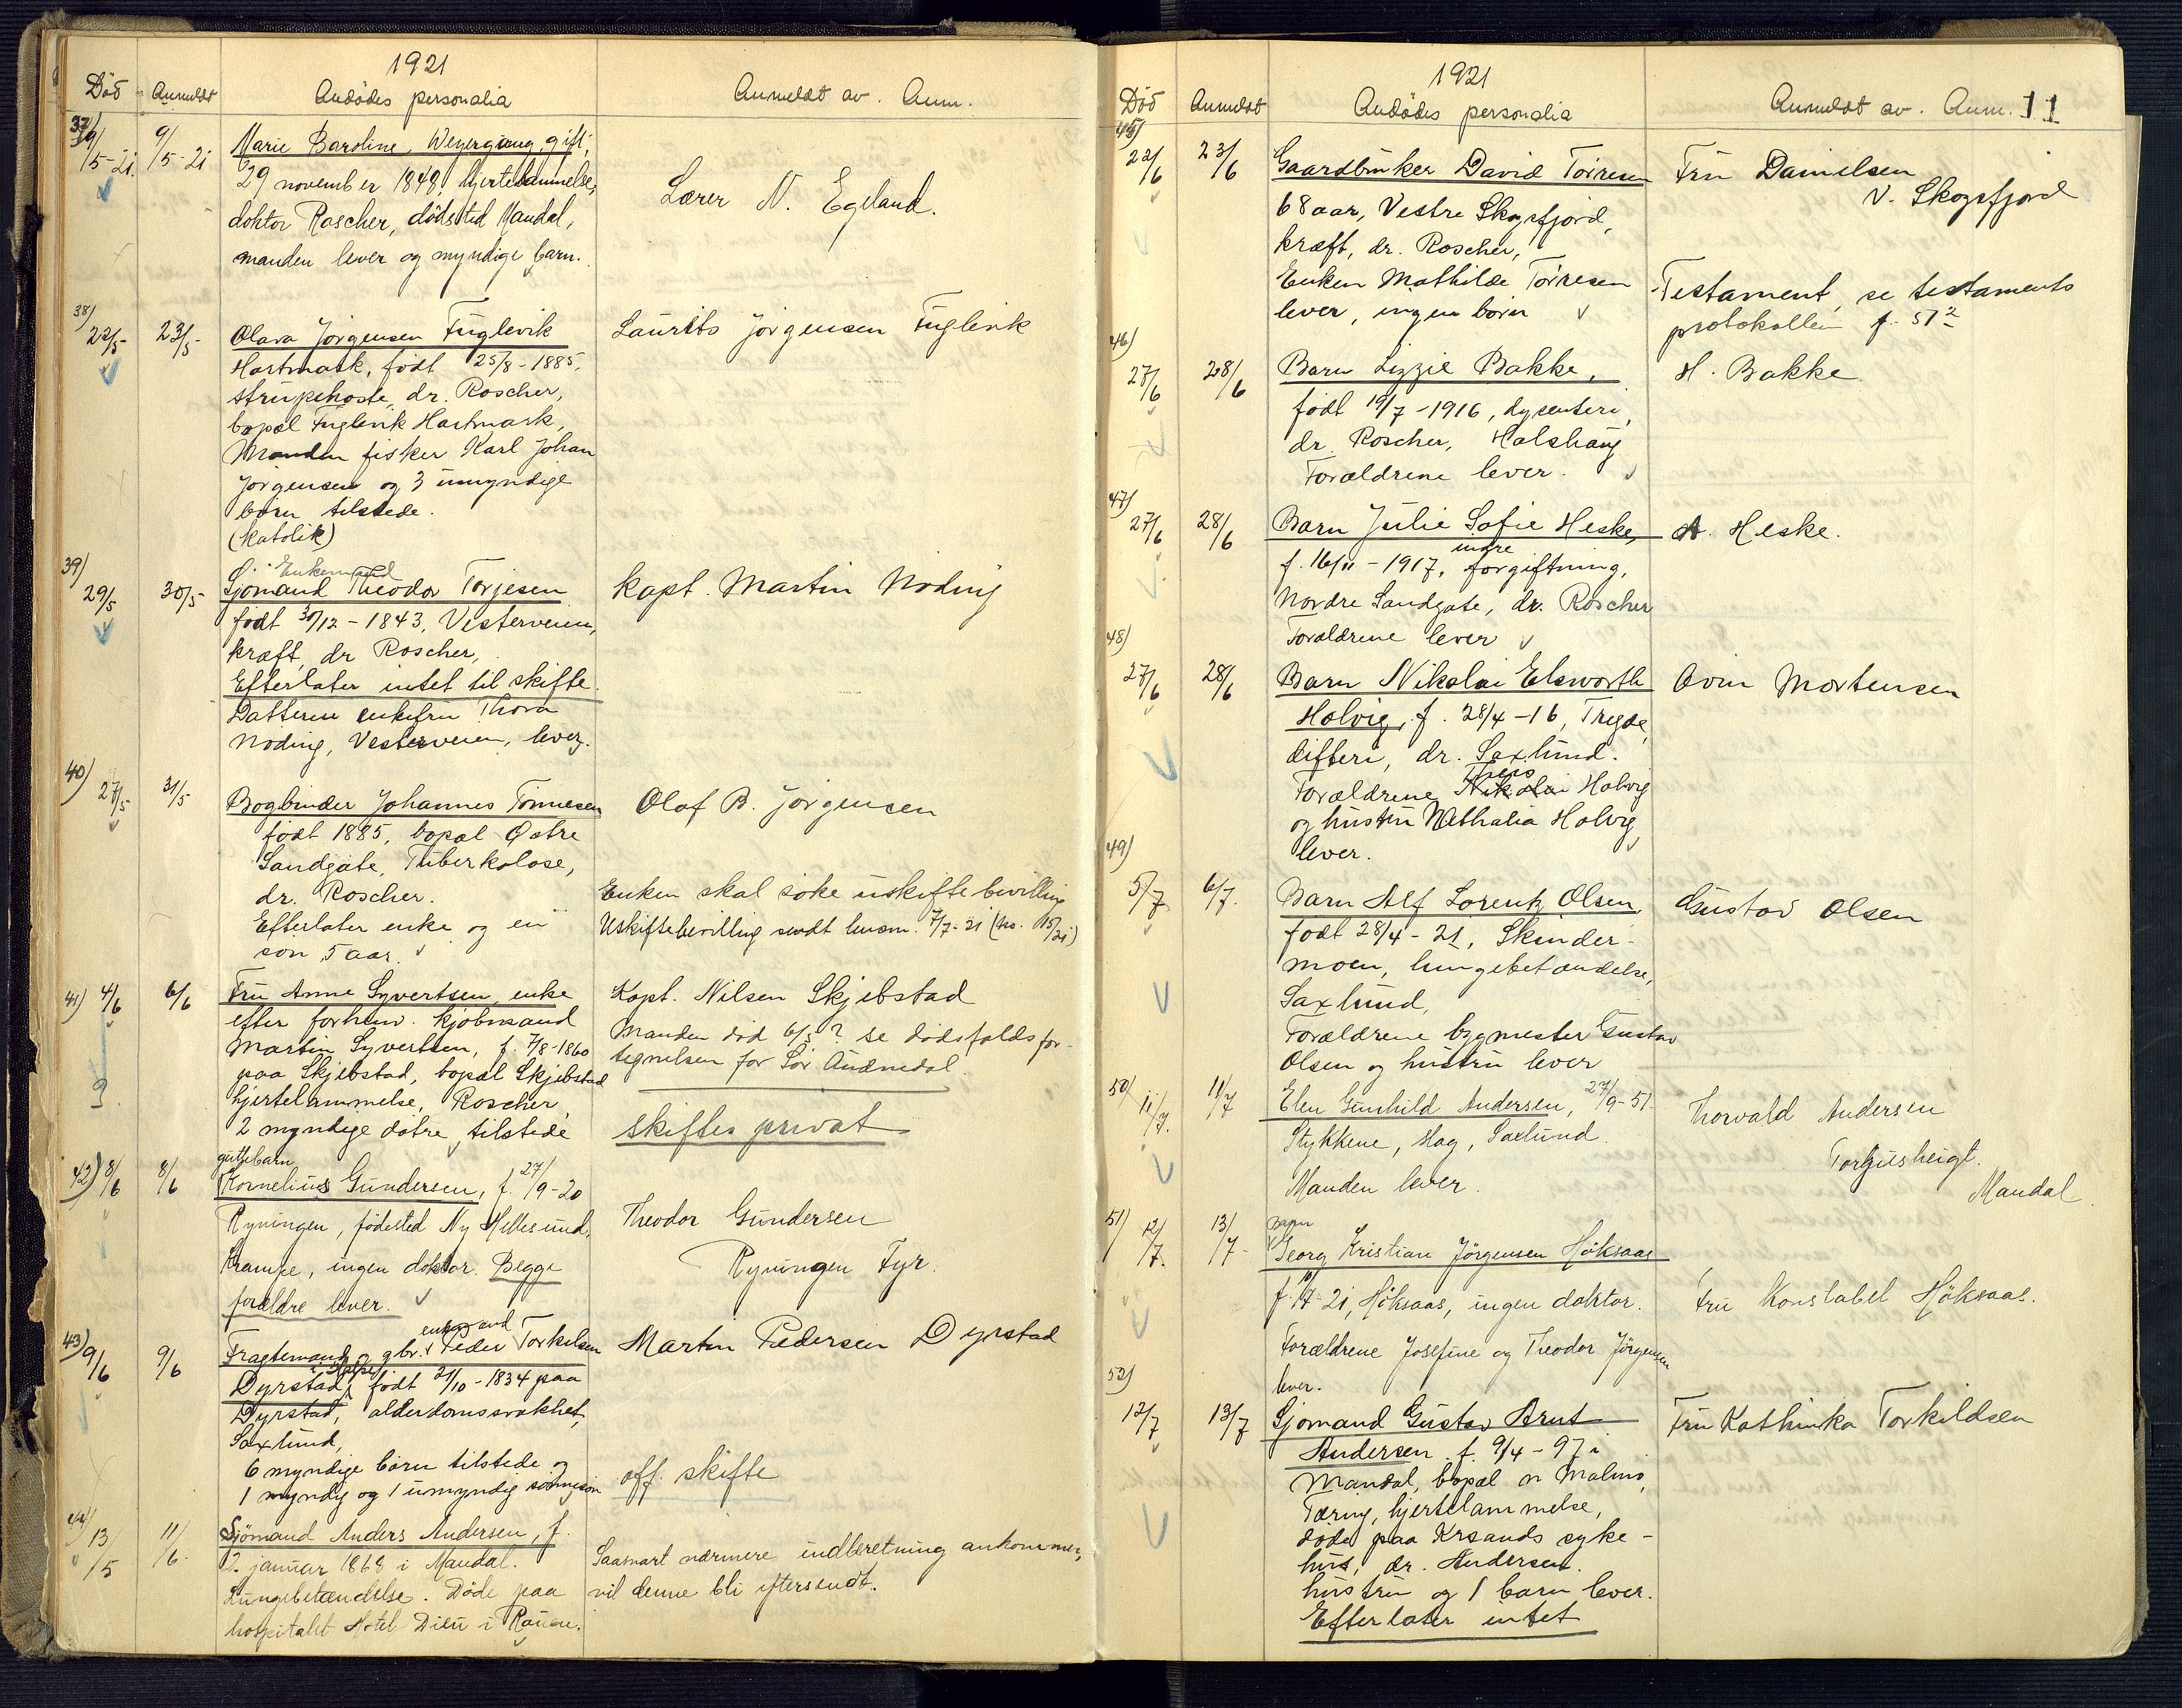 1921
Död Anmeldt Avdödes personalia Anmeldt av. Anm.
37)
9/5-21. 9/5-21
Marie Baroline Weyergang, gift,
29 november 1848, hjertelammelse,
doktor Roscher, dödssted Mandal,
manden lever og myndige barn.
Lærer N. Egeland.
38)
22/5 23/5
Olava Jörgensen Fuglevik
Hartmark, födt 25/8-1885,
strupehoste, dr. Roscher,
bopæl Fuglevik Hartmark,
Manden fisker Karl Johan
Jörgensen og 3 umyndige
börn tilstede.
(katolik)
Laurits Jörgensen Fuglevik
39)
29/5 30/5
Enkemand
Sjömand Theodor Torjesen
födt 30/12-1843, Vesterveien,
kræft, dr Roscher,
Efterlater intet til skifte.
Datteren enkefru Thora
Noding, Vesterveien, lever.
kapt. Martin Noding
40)
27/5 31/5
Bogbinder Johannes Tönnesen
födt 1885, bopæl Östre
Sandgate, Tuberkolose,
dr. Roscher.
Efterlater enke og en
sön 5 aar.
Olaf B. Jörgensen
Enken skal söke uskiftebevilling
Uskiftebevilling sendt
41) 4/6 6/6
Fru Anne Syvertsen, enke
efter forhenv. kjöbmand
Martin Syvertsen, f. 7/8-1860
paa Skjebstad, bopæl Skjebstad
hjertelammelse, Roscher,
2 myndige dötre tilstede
Kapt. Nilsen Skjebstad
Manden död 6/5? se dödsfaldsfor-
tegnelsen for Sör Audnedal.
skiftes privat
42) 8/6 8/6
guttebarn
Kornelius Gundersen, f. 27/9-20
Ryningen, födested Ny Hellesund,
Krampe, ingen doktor. Begge
forældre lever.
Theodor Gundersen
Ryningen Fyr.
43) 9/6 9/6
enkemand
Fragtemand og gbr. Peder Torkelsen
Dyrstad, födt 21/10-1834 paa
Dyrstad, alderdomssvakhet,
Saxlund,
6 myndige börn tilstede og
1 myndig og 1 umyndig sönnesön
Martin Pedersen Dyrstad
off. skifte
44) 13/5 11/6
Sjömand Anders Andersen, f.
2. januar 1868 i Mandal.
Lungebetændelse. Döde paa
hospitalet Hotel Dieu i Rouen.
Saasnart nærmere indberetning ankommer,
vil denne bli eftersendt.
1921
Död Anmeldt Avdödes personalia Anmeldt av. Anm. 11
45)
22/6 23/6
Gaardbruker David Törresen
68 aar, Vestre Skogsfjord,
kræft, dr. Roscher,
Enken Mathilde Törresen
lever, ingen börn
Fru Danielsen
V. Skogsfjord
Testament, se testaments
protokollen f. 57
46)
27/6 28/6
Barn Lizzie Bakke,
födt 19/7-1916, dysenteri,
dr. Roscher, Halshaug
Forældrene lever.
H. Bakke
47)
27/6 28/6
Barn Julie Sofie Heske,
indre
f. 16/11-1917, forgiftning,
Nordre Sandgate, dr. Roscher
Forældrene lever
A. Heske.
48)
27/6 28/6
Barn Nikolai Elsworth
Holvig, f. 28/4-16, Tregde,
difteri, dr. Saxlund.
Forældrene Nikolai Holvig
og hustru Nathalia Holvig
lever.
Ovin Mortensen
49)
5/7 6/7.
Barn Alf Lorentz Olsen,
födt 28/4-21, Skinder-
moen, lungebetændelse,
Saxlund,
Forældrene bygmester Gustav
Olsen og hustru lever
Gustav Olsen
50)
11/7. 11/7
Elen Gunhild Andersen, 27/9-51.
Stykkene, Hag, Saxlund.
Manden lever.
Thorvald Andersen
Torgusheigt.
Mandal.
51)
12/7. 13/7-
Georg Kristian Jörgensen Höksaas
Höksaas, ingen doktor.
Forældrene Josefine og Theodor Jörgensen
lever.
Fru Konstabel Höksaas.
52)
12/7 13/7
Sjömand Gustav Arnt
Andersen f. 9/4-97 i
Mandal, bopæl n Malmö,
Tæring, hjertelammelse,
döde paa Krsands syke-
hus, dr. Andersen.
hustru og 1 barn lever.
Efterlater intet
Fru Kathinka Torkildsen